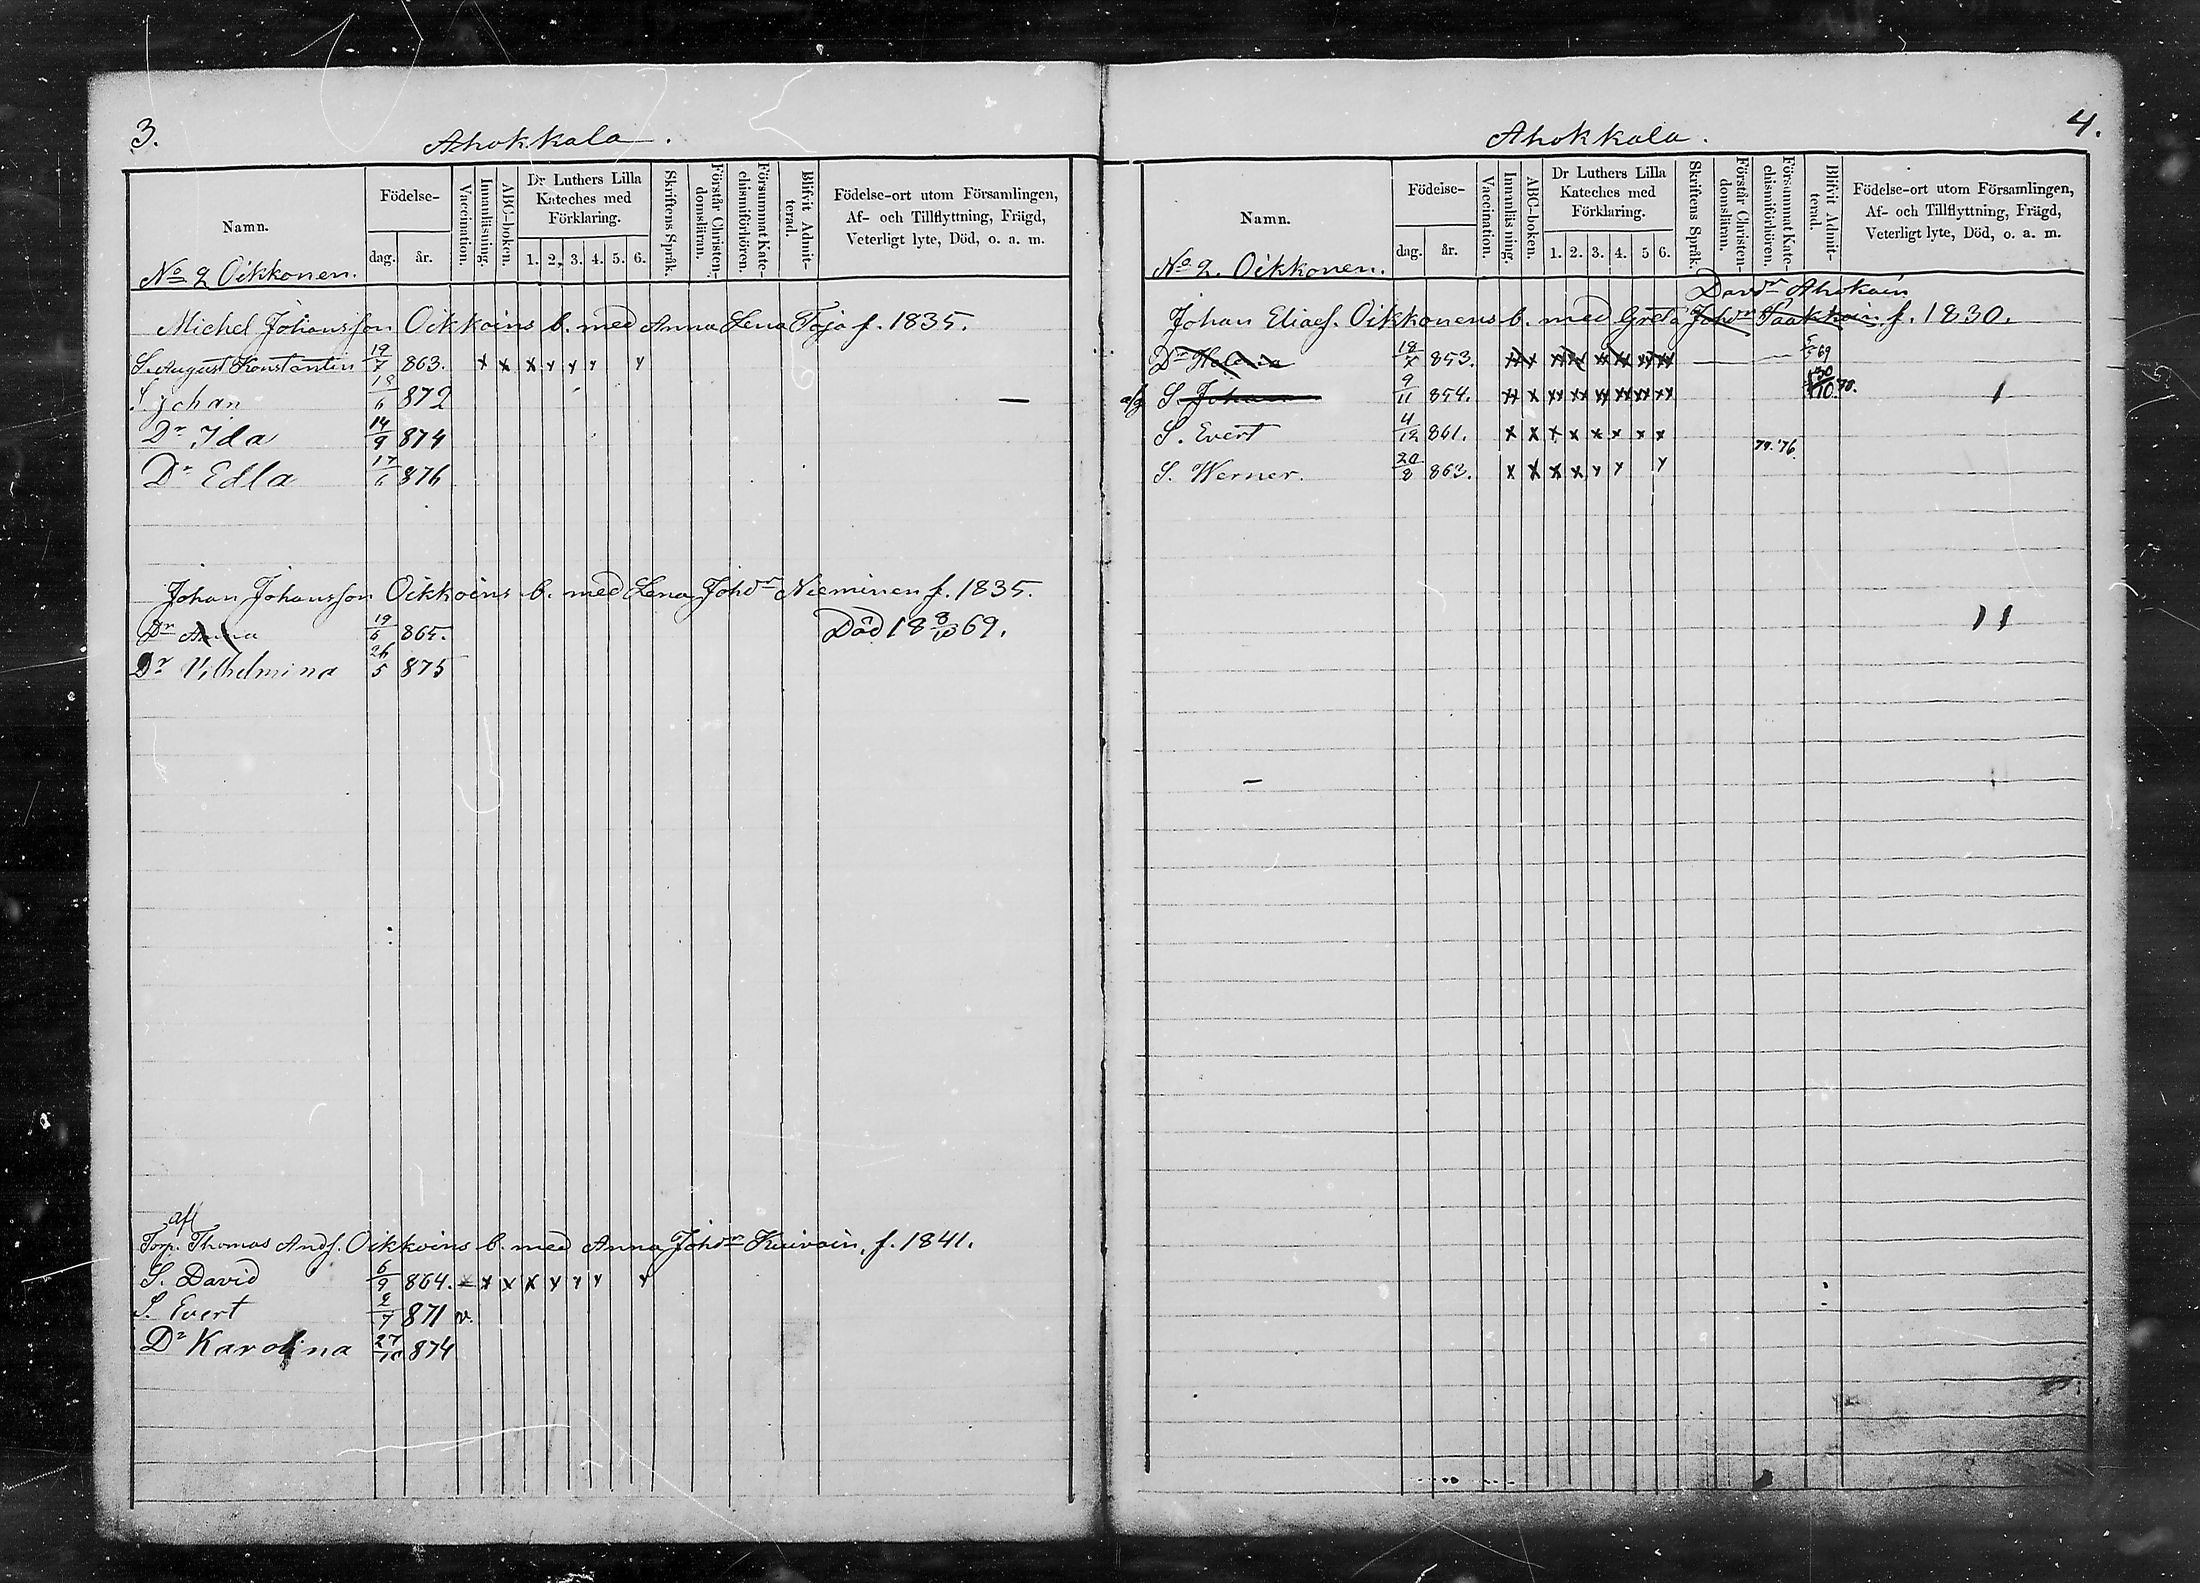 3.
Ahokkala.
Namn.
Födelse-
dag. år.
Vaccination.
Innanläsning.
ABC-boken.
Dr Luthers Lilla Kateches med Förklaring.
1. 2. 3. 4. 5. 6.
Skriftens Språk.
Förstår Christendomsläran.
Försummat Katechismiförhören.
Blifvit Admitterad.
Födelse-ort utom Församlingen,
Af- och Tillflyttning, Frägd,
Veterligt lyte, Död, o. a. m.
No 2 Oikkonen.
Michel Johansson Oikkoins b. med Anna Lena Toja f. 1835.
S. August Konstantin 19/7 863. x x x y y y y
S. Johan 18/6 872 —
Dr Ida 14/9 874
Dr Edla 17/6 876
Johan Johansson Oikkoins b. med Lena Johdr Nieminen f. 1835.
Dr Anna 19/6 865. Död 18 8/10 69.
Dr Vilhelmina 26/5 875
afl
Torp. Thomas Ands. Oikkoins b. med Anna Johdr Kuivain, f. 1841.
S. David 6/9 864. x x x y y y y
S. Evert 2/7 871 v.
Dr Karolina 27/10 874
4.
Ahokkala.
Namn.
Födelse-
dag. år.
Vaccination.
Innanläsning.
ABC-boken.
Dr Luthers Lilla Kateches med Förklaring.
1. 2. 3. 4. 5 6.
Skriftens Språk.
Förstår Christendomsläran.
Försummat Katechismiförhören.
Blifvit Admitterad.
Födelse-ort utom Församlingen,
Af- och Tillflyttning, Frägd,
Veterligt lyte, Död, o. a. m.
No 2. Oikkonen.
Davdr Ahokain
Johan Eliaes. Oikkonens b. med Greta Johdr Paakkoin f. 1830.
Dr Helena 18/7 853. — — 69
S. Johan 9/11 854. 30/10 70.
S. Evert 4/12 861. x x x x x x x x
74. '76.
S. Werner. 20/8 863. x x x x y y y